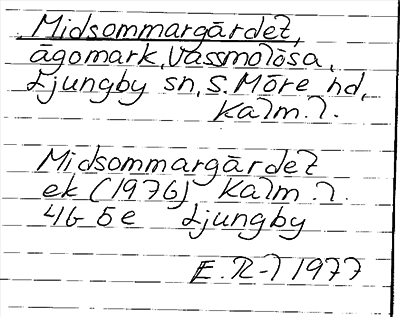 Midsommargärdet,
ägomark, Vassmolösa,
Ljungby sn, S. Möre hd,
Kalm. l.
Midsommargärdet
ek (1976) Kalm. l.
4G 5e Ljungby
E. R-l 1977